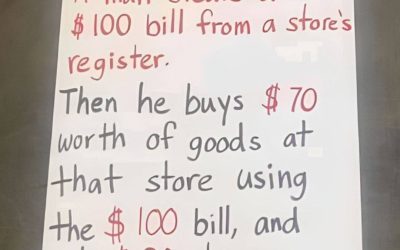 $100 bill from a store's
register.
Then he buys $70
worth of goods at
that store using
the $100 bill, and